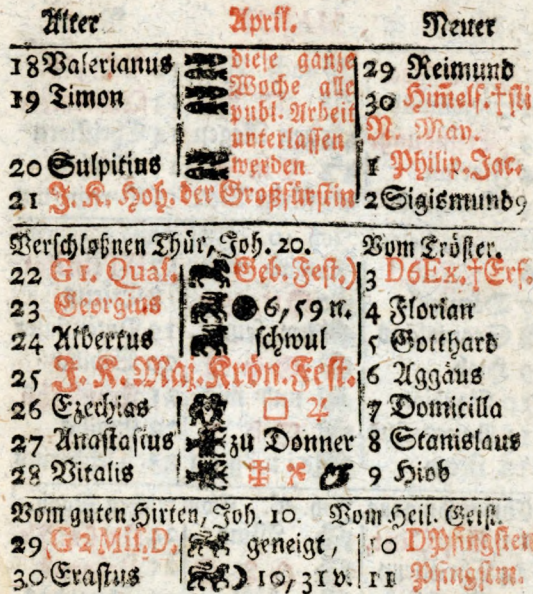 Alter April. Neuer
18 Valerianus diese gantze 29 Reimund
19 Timon Woche alle 30 Him̃elf. † sli
publ. Arbeit
unterlassen N. May.
20 Sulpitius werden 1 Philip. Jac.
21 J. K. Hoh. der Großfürstin 2 Sigismund
Verschloßnen Thür, Joh. 20. Vom Tröster.
22 G 1. Qual. Geb. Fest.) 3 D6Ex. † Erf.
23 Georgius ● 6, 59 n. 4 Florian
24 Albertus schwul 5 Gotthard
25 J. K. Maj. Krön. Fest. 6 Aggäus
26 Ezechias □ ♃ 7 Domicilla
27 Anastasius zu Donner 8 Stanislaus
28 Vitalis 9 Hiob
Vom guten Hirten, Joh. 10. Vom Heil. Geist.
29 G 2 Mis. D. geneigt, 10 D Pfingsten
30 Erastus ☽ 10, 31 v. 11 Pfingstm.